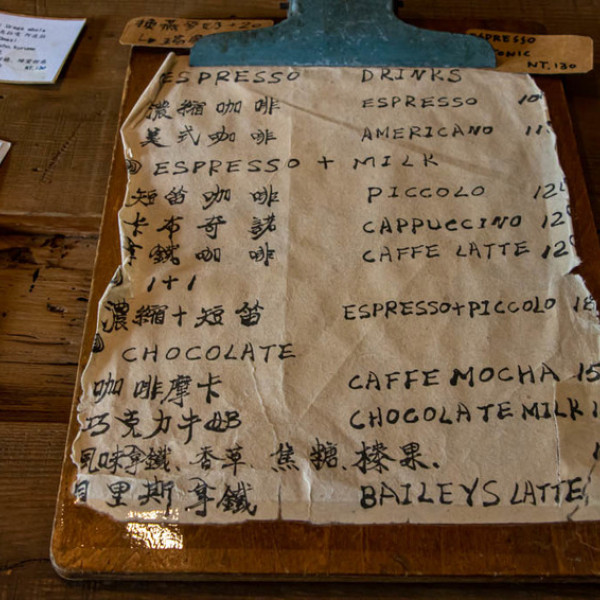 ESPRESSO
TONIC
NT. 130
ESPRESSO DRINKS
濃縮咖啡 ESPRESSO
美式咖啡 AMERICANO
ESPRESSO + MILK
短笛咖啡 PICCOLO
卡布奇諾 CAPPUCCINO
拿鐵咖啡 CAFFE LATTE
1+1
濃縮+短笛 ESPRESSO+PICCOLO
CHOCOLATE
咖啡摩卡 CAFFE MOCHA
巧克力牛奶 CHOCOLATE MILK
風味拿鐵、香草、焦糖、榛果.
貝里斯拿鐵 BAILEYS LATTE